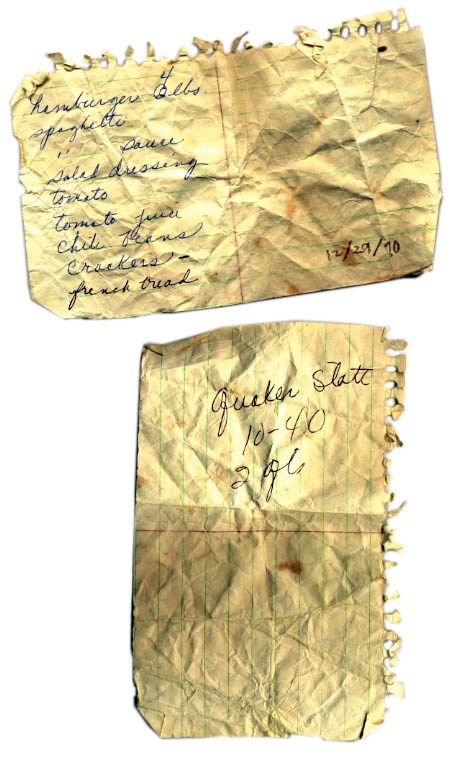 hamburger 6 lbs
spaghetti
" sauce
salad dressing
tomato
tomato juice
chili beans
crackers -
french bread
12/29/90
Quaker State
10-40
2 qts